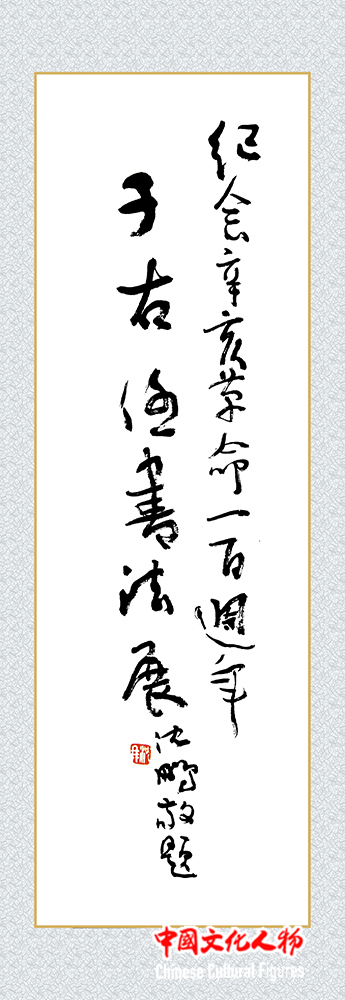 纪念辛亥革命一百週年
于右任書法展
沈鹏敬题
中國文化人物
Chinese Cultural Figures